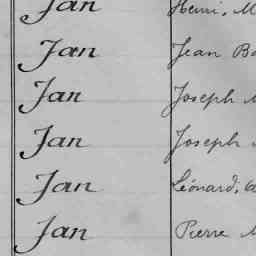 Jan Henri, M
Jan Jean Ba
Jan Joseph
Jan Joseph
Jan Léonard,
Jan Pierre